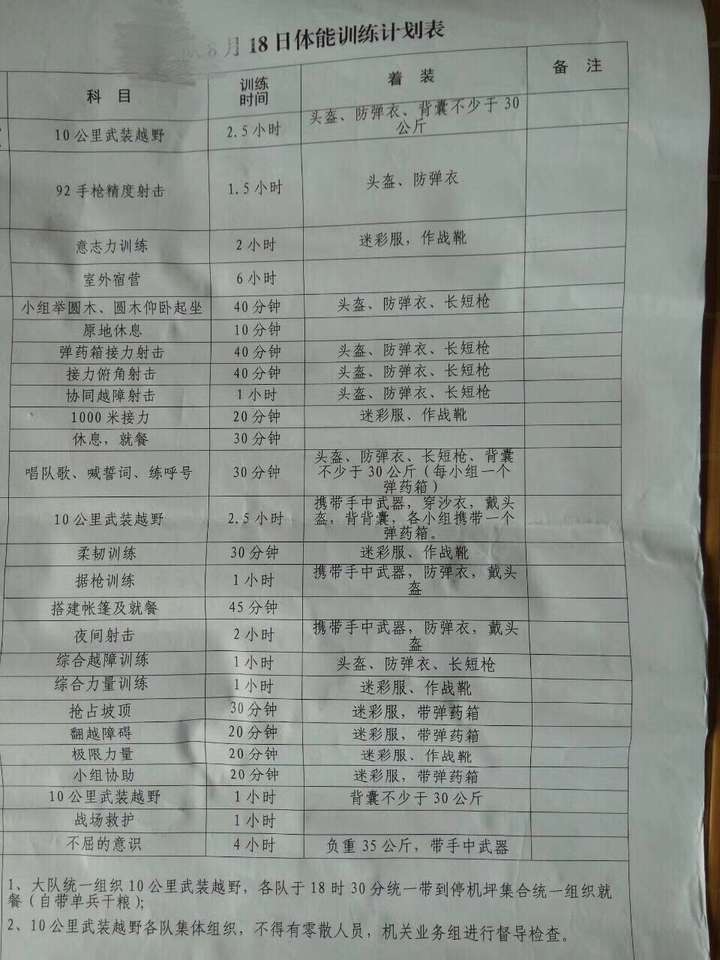 月18日体能训练计划表
科 目 训练时间 着 装 备 注
10公里武装越野 2.5小时 头盔、防弹衣、背囊不少于30公斤
92手枪精度射击 1.5小时 头盔、防弹衣
意志力训练 2小时 迷彩服，作战靴
室外宿营 6小时
小组举圆木、圆木仰卧起坐 40分钟 头盔、防弹衣、长短枪
原地休息 10分钟
弹药箱接力射击 40分钟 头盔、防弹衣、长短枪
接力俯角射击 40分钟 头盔、防弹衣、长短枪
协同越障射击 1小时 头盔、防弹衣、长短枪
1000米接力 20分钟 迷彩服、作战靴
休息，就餐 30分钟
唱队歌、喊誓词、练呼号 30分钟 头盔、防弹衣、长短枪、背囊不少于30公斤（每小组一个弹药箱）
10公里武装越野 2.5小时 携带手中武器，穿沙衣，戴头盔，背背囊，各小组携带一个弹药箱。
柔韧训练 30分钟 迷彩服、作战靴
据枪训练 1小时 携带手中武器，防弹衣，戴头盔
搭建帐篷及就餐 45分钟
夜间射击 2小时 携带手中武器，防弹衣，戴头盔
综合越障训练 1小时 头盔、防弹衣、长短枪
综合力量训练 1小时 迷彩服、作战靴
抢占坡顶 30分钟 迷彩服，带弹药箱
翻越障碍 20分钟 迷彩服，带弹药箱
极限力量 20分钟 迷彩服、作战靴
小组协助 20分钟 迷彩服，带弹药箱
10公里武装越野 1小时 背囊不少于30公斤
战场救护 1小时
不屈的意识 4小时 负重35公斤，带手中武器
1、大队统一组织10公里武装越野，各队于18时30分统一带到停机坪集合统一组织就
餐（自带单兵干粮）；
2、10公里武装越野各队集体组织，不得有零散人员，机关业务组进行督导检查。